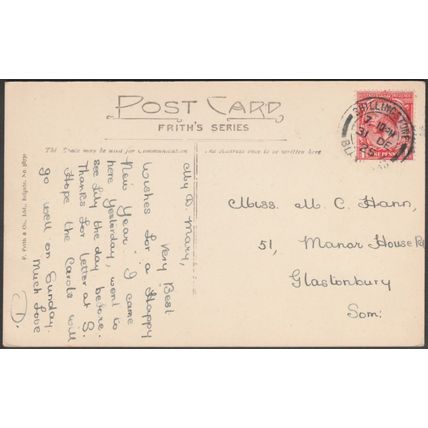 POST CARD
FRITH'S SERIES
This Space may be used for Communication
The Address to be written here
F. Frith & Co., Ltd., Reigate. No.
My D. Mary,
Very Best
Wishes for a Happy
New Year. I came
here yesterday, went to
see Lily the day before.
Thanks for letter at S.
Hope the Carols will
go well on Sunday.
Much Love
D.
SHILLINGSTONE
7-10 PM
31 DE
Miss. M. C. Hann,
51, Manor House Rd
Glastonbury
Som: